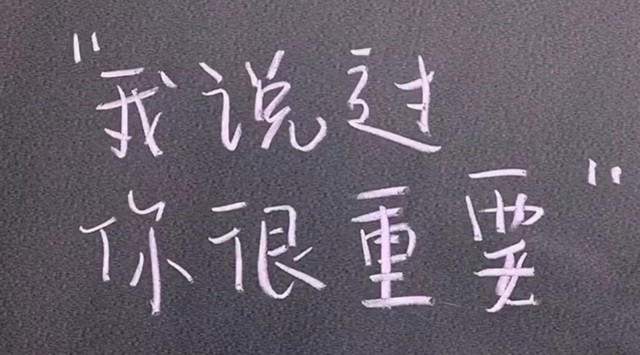 "我说过
你很重要"